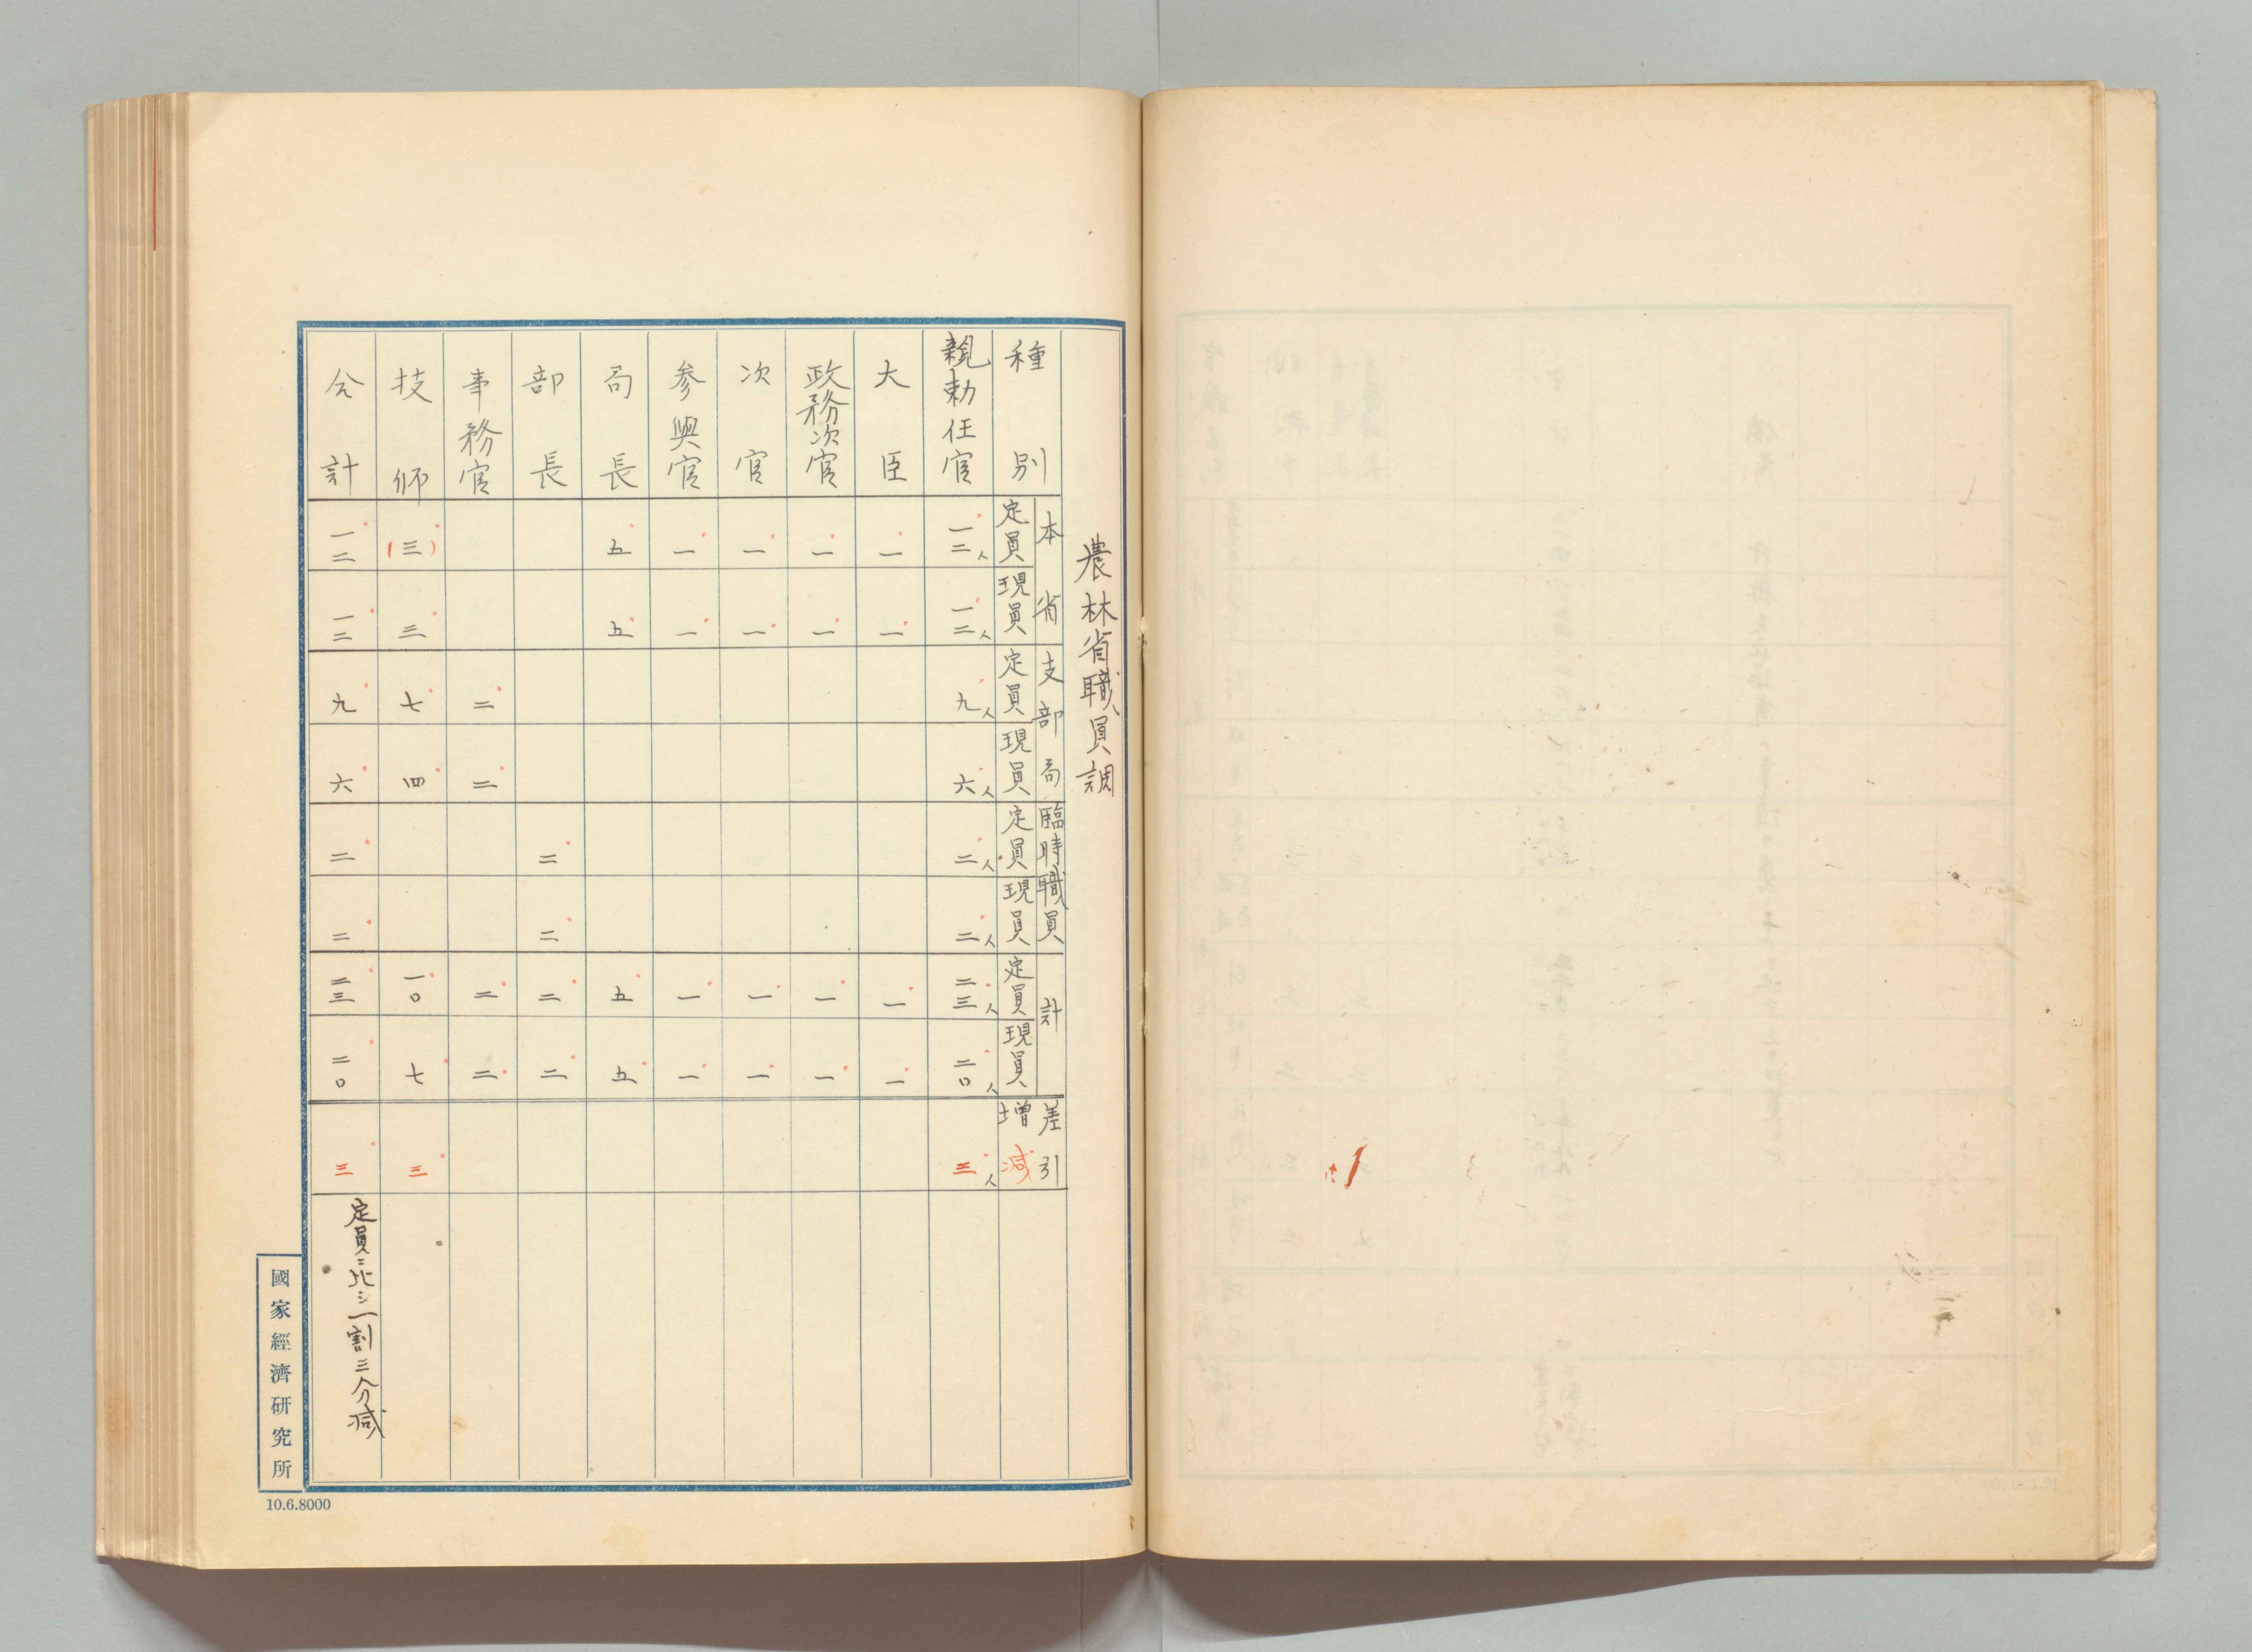 農林省職員調
種別 本省 定員 現員 支部局 定員 現員 臨時職員 定員 現員 計 定員 現員 差引 增減
親勅任官 一二人 一二人 九人 六人 二人 二人 二三人 二〇人 三人
大臣 一 一 一 一
政務次官 一 一 一 一
次官 一 一 一 一
参與官 一 一 一 一
局長 五 五 五 五
部長 二 二 二 二
事務官 二 二 二 二
技師 (三) 三 七 四 一〇 七 三
合計 一二 一二 九 六 二 二 二三 二〇 三 定員ニ比シ一割三分減
國家經濟研究所
10.6.8000